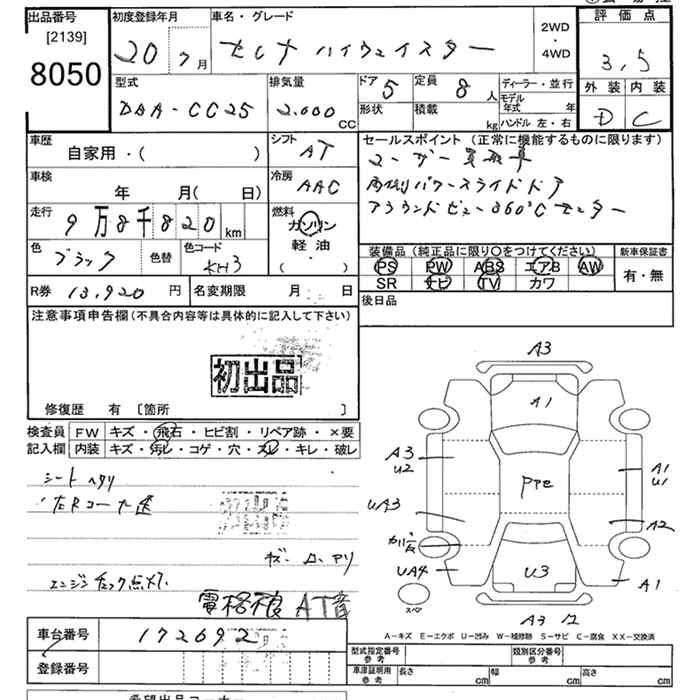 出品番号
[2139]
8050
初度登録年月
20 7月
車名・グレード
セレナ ハイウェイスター
2WD
・
4WD
評価点
3,5
外装 内装
D C
型式
DBA-CC25
排気量
2.000 CC
ドア 5
形状
定員 8 人
積載 kg
ディーラー・並行
モデル年式 年
ハンドル 左・右
車歴
自家用・( )
シフト
AT
車検
年 月( 日)
冷房
AAC
走行
9万8千820km
燃料
ガソリン
軽油・
( )
色
ブラック
色替
色コード
KH3
R券 13,920 円
名変期限 月 日
セールスポイント (正常に機能するものに限ります)
ユーザー買取車
両側パワースライドドア
アラウンドビュー360°Cセンター
装備品 (純正品に限り〇をつけてください)
PS PW ABS エアB AW
SR ナビ TV カワ
新車保証書
有・無
後日品
注意事項申告欄(不具合内容等は具体的に記入して下さい)
初出品
修復歴 有 [箇所 ]
検査員
記入欄
FW キズ・飛石・ヒビ割・リペア跡・×要
内装 キズ・汚レ・コゲ・穴・スレ・キレ・破レ
シートヘタリ
エンジンチェック点灯
電格検 AT音
A3
A1
A3
U2
A1
U1
PPe
UA3
A2
UA4
U3
A1
スペア
A3
A-キズ E-エクボ U-凹み W-補修跡 S-サビ C-腐食 XX-交換済
車台番号 172692
登録番号
型式指定番号
参考
類別区分番号
参考
車庫証明用
参考
長さ cm
幅 cm
高さ cm